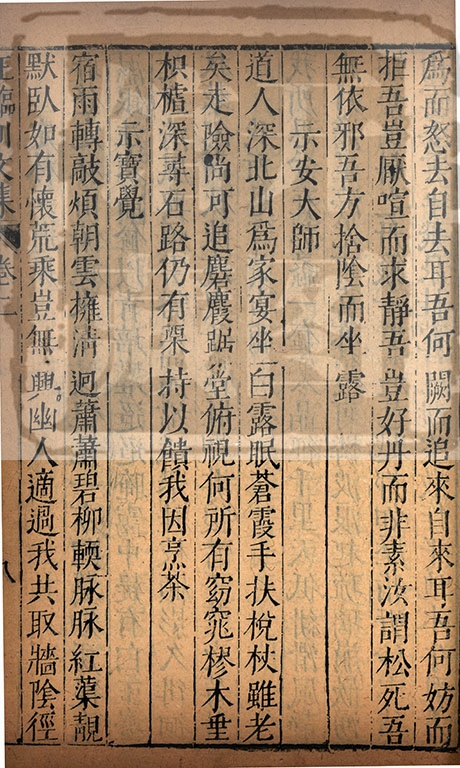 爲而怒去自去耳吾何闕而追來自來耳吾何妨而
拒吾豈厭喧而求靜吾豈好丹而非素汝謂松死吾
無依邪吾方捨陰而坐露
示安大師
道人深北山爲家宴坐白露眠蒼霞手扶梲杖雖老
矣走險尚可追麏麚踞堂俯視何所有窈窕樛木垂
枳櫨深尋石路仍有栗持以饋我因烹茶
示寶覺
宿雨轉敲煩朝雲擁清迥蕭蕭碧柳輭脉脉紅蕖靚
默臥如有懷荒乘豈無興幽人適過我共取牆陰徑
王臨川文集 卷二 八